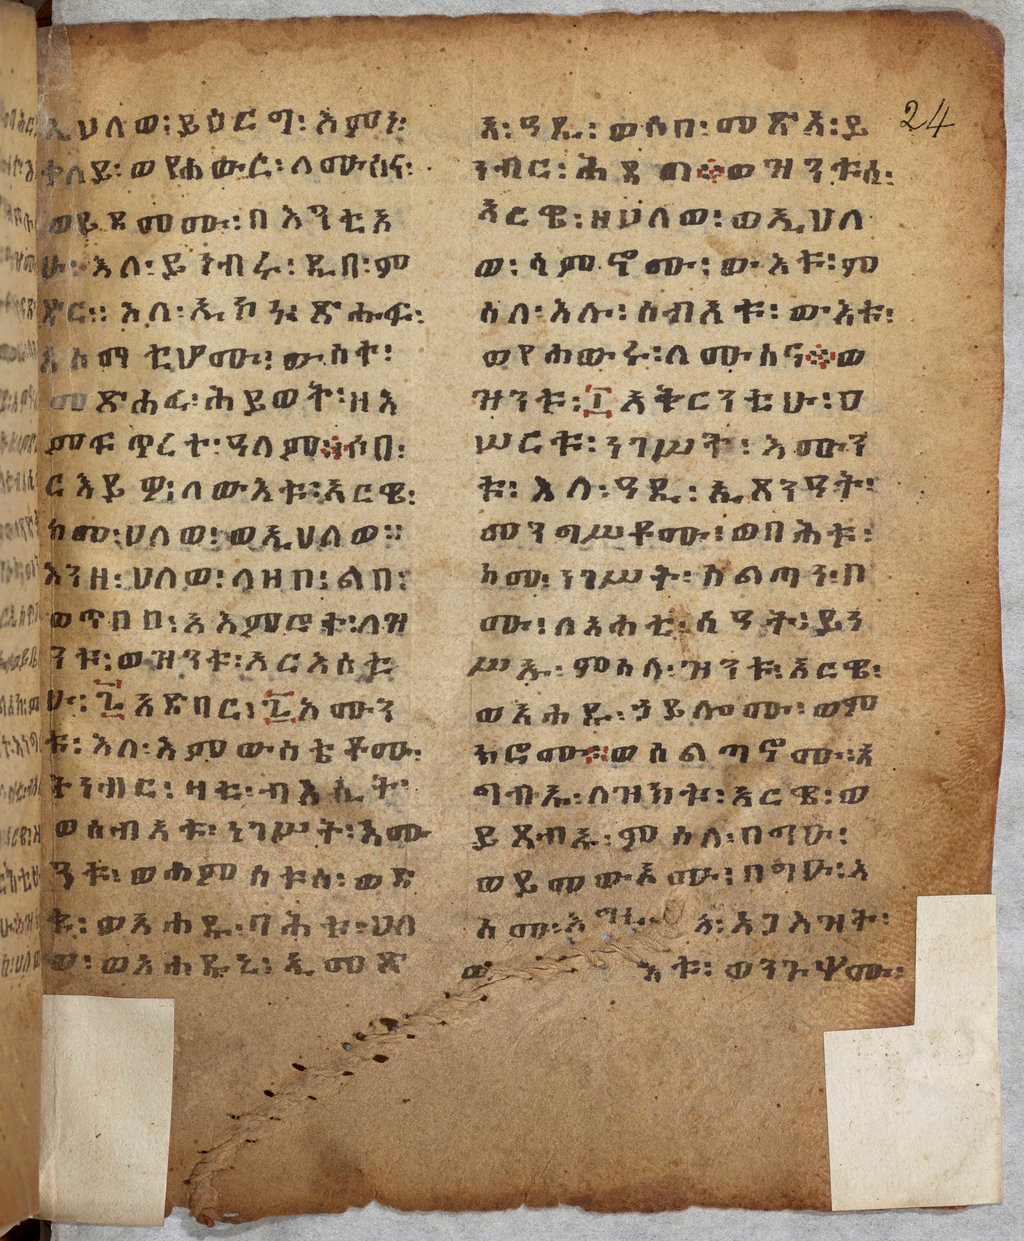 ኢሀለወ፡ይዐርግ፡እምነ፡
ቀለይ፡ወየሐውር፡ለሙስና፡
ወይደመሙ፡በእንቲአ
ሁ፡እለ፡ይነብሩ፡ዲበ፡ም
ድር። እለ፡ኢኮነ፡ጽሑፍ፡
አስማቲሆሙ፡ውስተ፡
መጽሐፈ፡ሕይወት፡ዘእ
ምፍጥረተ፡ዓለም፨ሶበ፡
ርእይዎ፡ለውእቱ፡አርዌ፡
ከመ፡ሀለወ፡ወኢሀለወ።
እንዘ፡ሀለወ፡ለዘቦ፡ልበ፡
ወጥበበ፡አእምሮት፡ለዝ
ንቱ፡ወዝንቱ፡አርእስቲ
ሁ፡፯አድባር፡፯እሙን
ቱ፡እለ፡እምውስቴቶሙ፡
ትነብር፡ዛቲ፡ብእሲት
ወሰብአቱ፡ነገሥት፡እሙ
ንቱ፡ወኀምስቱሰ፡ወድ
ቁ፡ወአሐዱ፡ባሕቱ፡ሀለ
ወ፡ወአሐዱኒ፡ኢመጽ
አ፡ዓዲ፡ወሶበ፡መጽአ፡ይ
ነብር፡ሕዳጠ፨ወዝንቱሰ፡
አርዌ፡ዘሀለወ፡ወኢሀለ
ወ፡ሳምኖሙ፡ውእቱ፡ም
ስለ፡እሉ፡ሰብአቱ፡ውእቱ፡
ወየሐውሩ፡ለሙስና፨ወ
ዝንቱ፡፲አቅርንቲሁ፡ዐ
ሠርቱ፡ነገሥት፡እሙን
ቱ፡እለ፡ዓዲ፡ኢጸንዓት፡
መንግሥቶሙ፡ወባሕቱ፡
ከመ፡ነገሥት፡ሥልጣነ፡ቦ
ሙ፡ለአሐቲ፡ሰዓት፡ይነ
ሥኡ፡ምስለ፡ዝንቱ፡አርዌ፡
ወአሐዱ፡ኃይሎሙ፡ወም
ክሮሙ፨ወስልጣኖሙ፡አ
ግብኡ፡ለዝክቱ፡አርዌ፡ወ
ይጸብኡ፡ምስለ፡በግዑ፡
ወይመውኦሙ፡በግዑ፡እ
ስመ፡አጋእዝት፡
እቱ፡ወንጉሦሙ፡
24